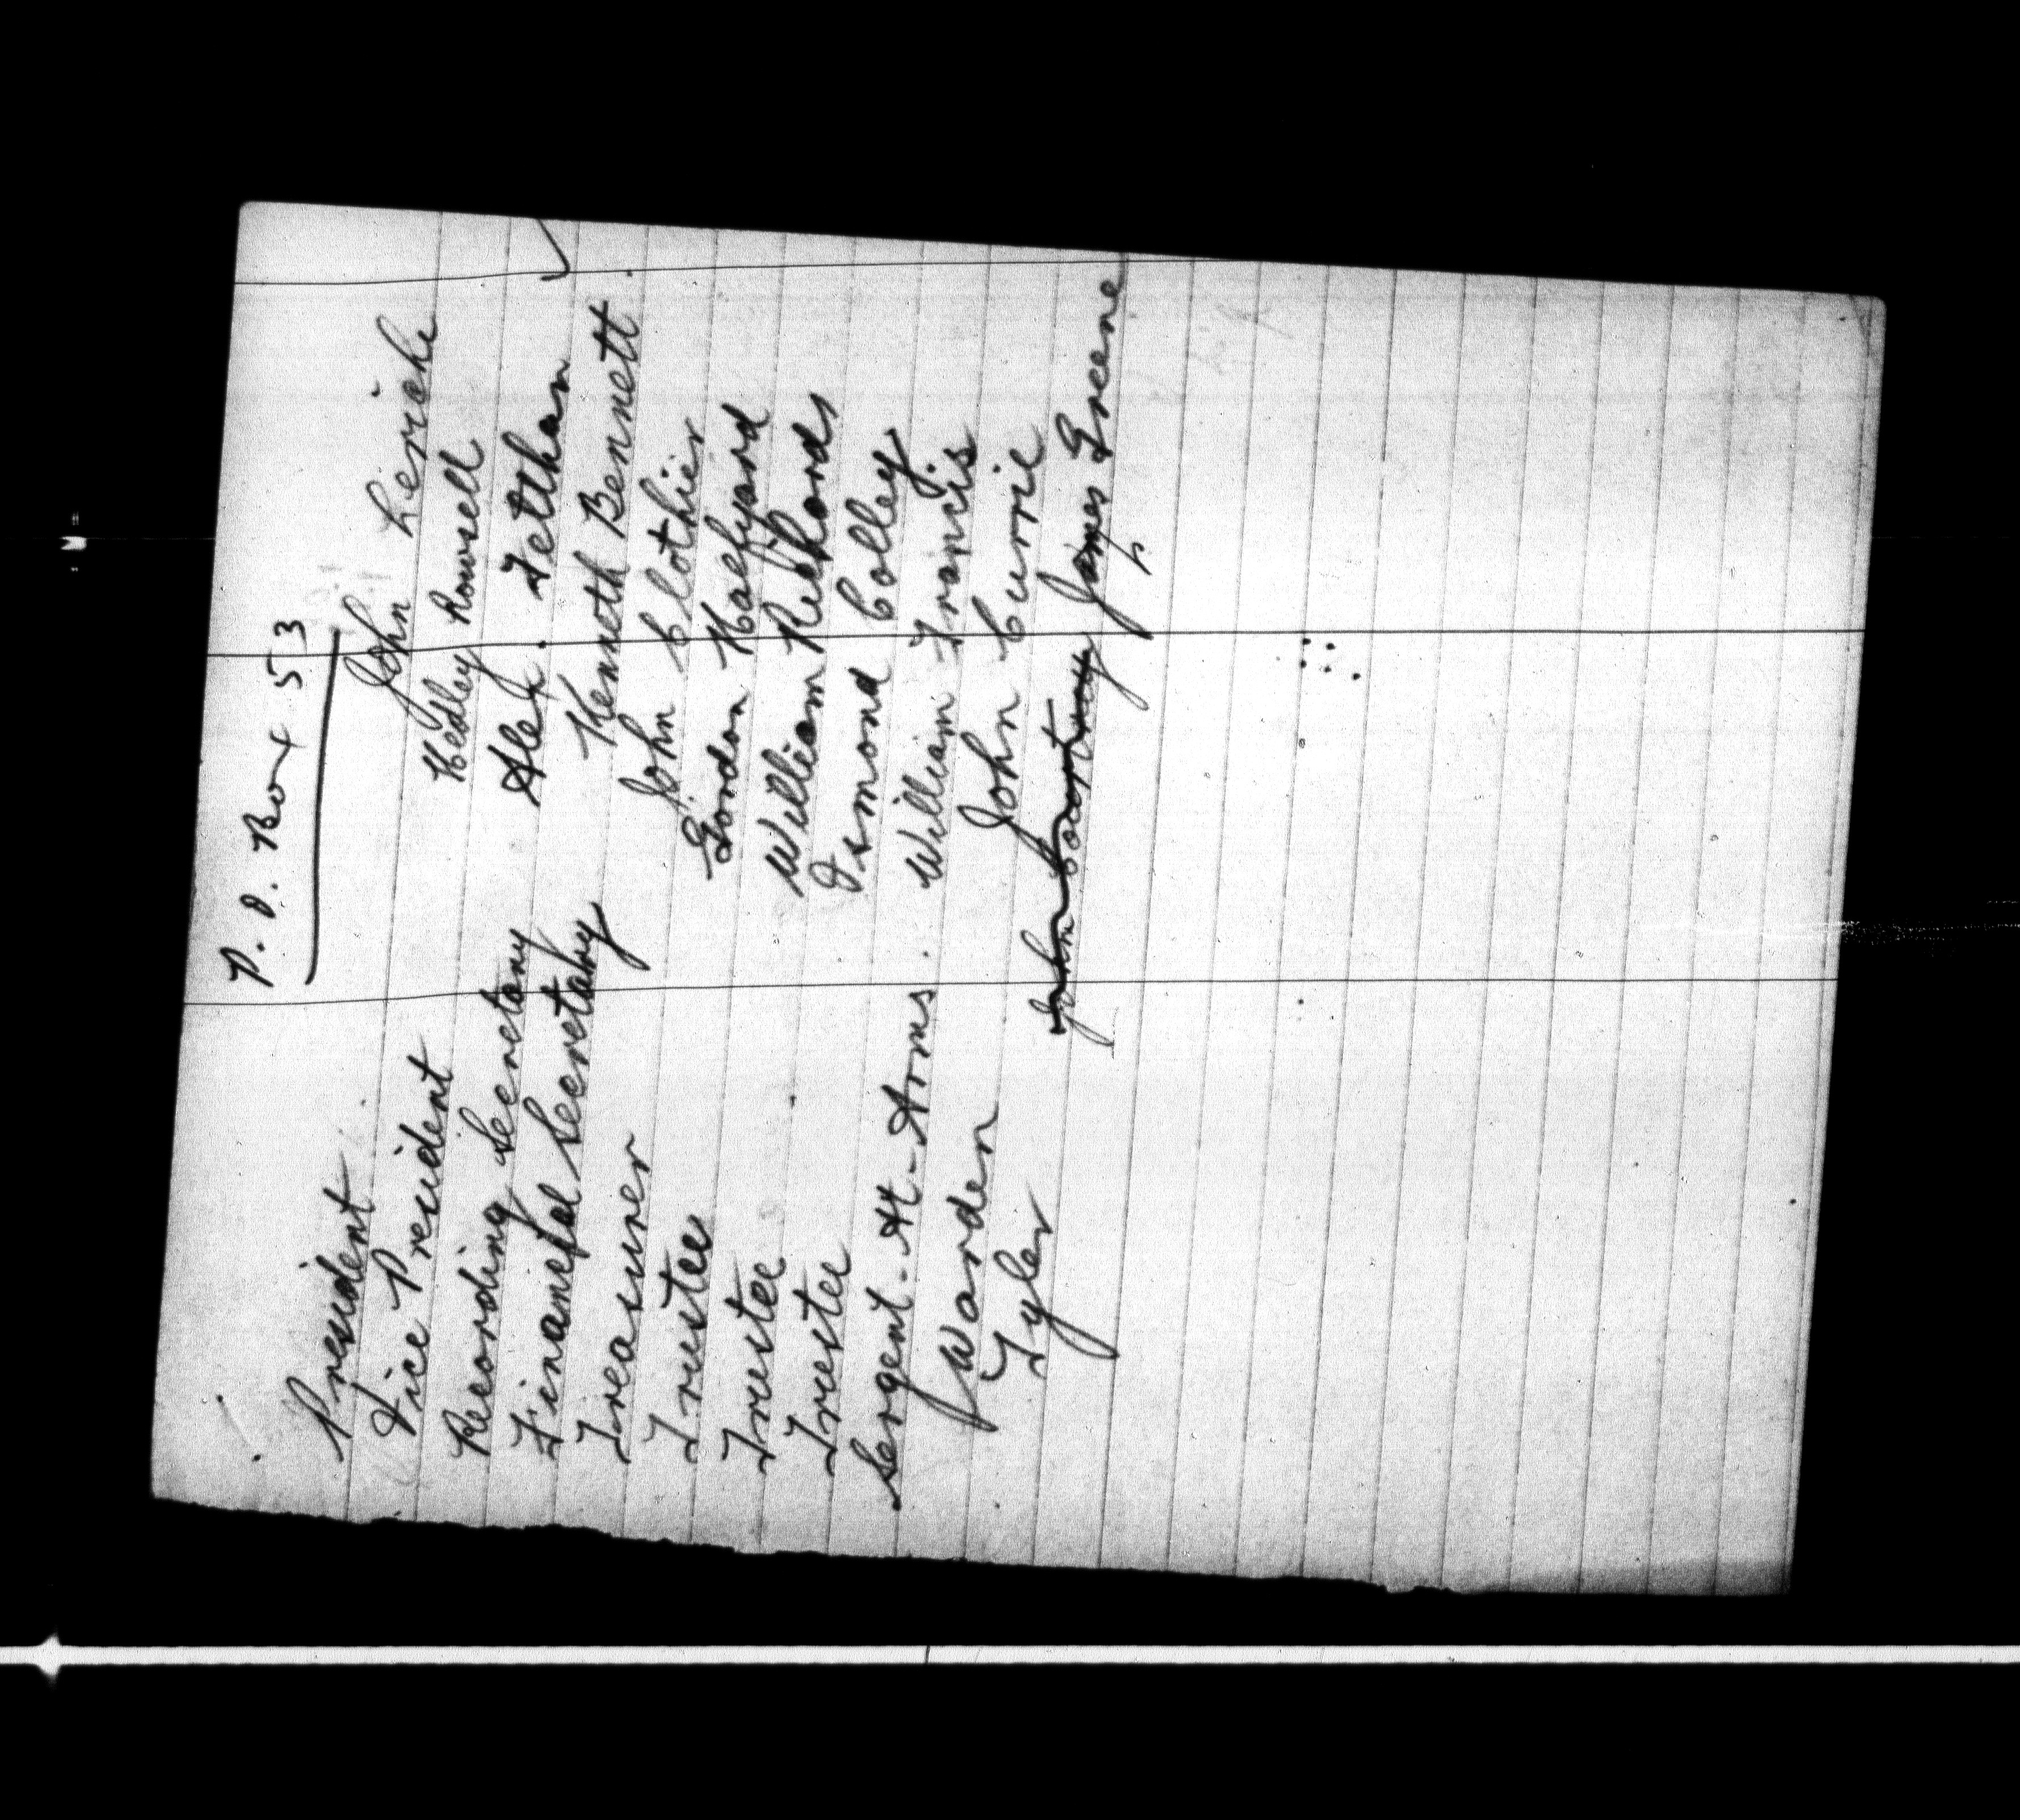 P. O. Box 53
President John Leriche
Vice President Hedley Rowsell
Recording Secretary Alex. Tetthan
Financial Secretary Kenneth Bennett.
Treasurer John Clothier
Trustee Gordon Halfyard
Trustee William Richards
Trustee Ismond Colley
Sergent-At-Arms. William Francis
Warden John Currie
Tyler John Courtney James Greene